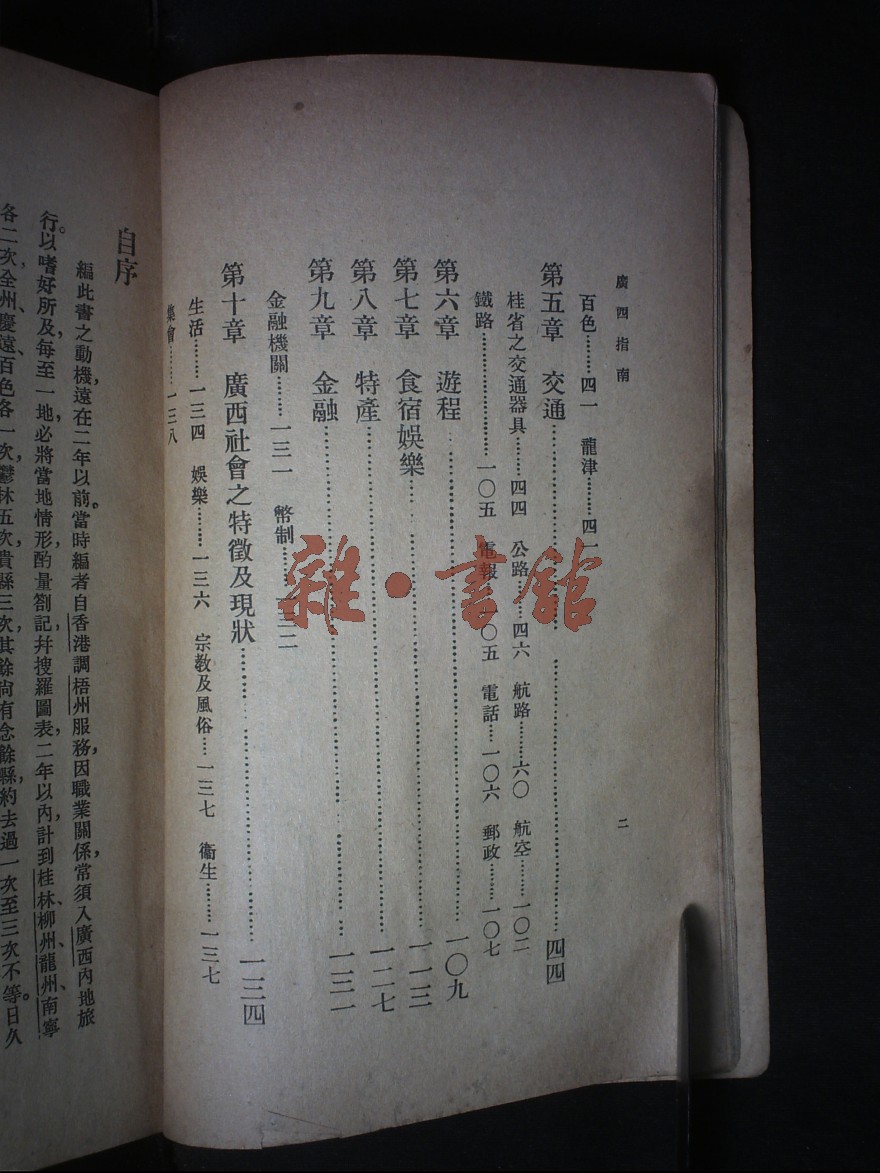 廣西指南
二
百色………四一　龍津………四一
第五章　交通………四四
桂省之交通器具………四四　公路………四六　航路………六〇　航空………一〇二
鐵路………一〇五　電報………一〇五　電話………一〇六　郵政………一〇七
第六章　遊程………一〇九
第七章　食宿娛樂………一一三
第八章　特產………一二七
第九章　金融………一三一
金融機關………一三一　幣制………一三二
第十章　廣西社會之特徵及現狀………一三四
生活………一三四　娛樂………一三六　宗教及風俗………一三七　衞生………一三七
集會………一三八
自序
編此書之動機，遠在二年以前。當時編者自香港調梧州服務，因職業關係，常須入廣西內地旅
行。以嗜好所及，每至一地，必將當地情形，酌量劄記，幷搜羅圖表，二年以內，計到桂林、柳州、龍州、南寧
各二次，全州、慶遠、百色各一次，鬱林五次，貴縣三次，其餘尙有念餘縣，約去過一次至三次不等。日久
雜·書館